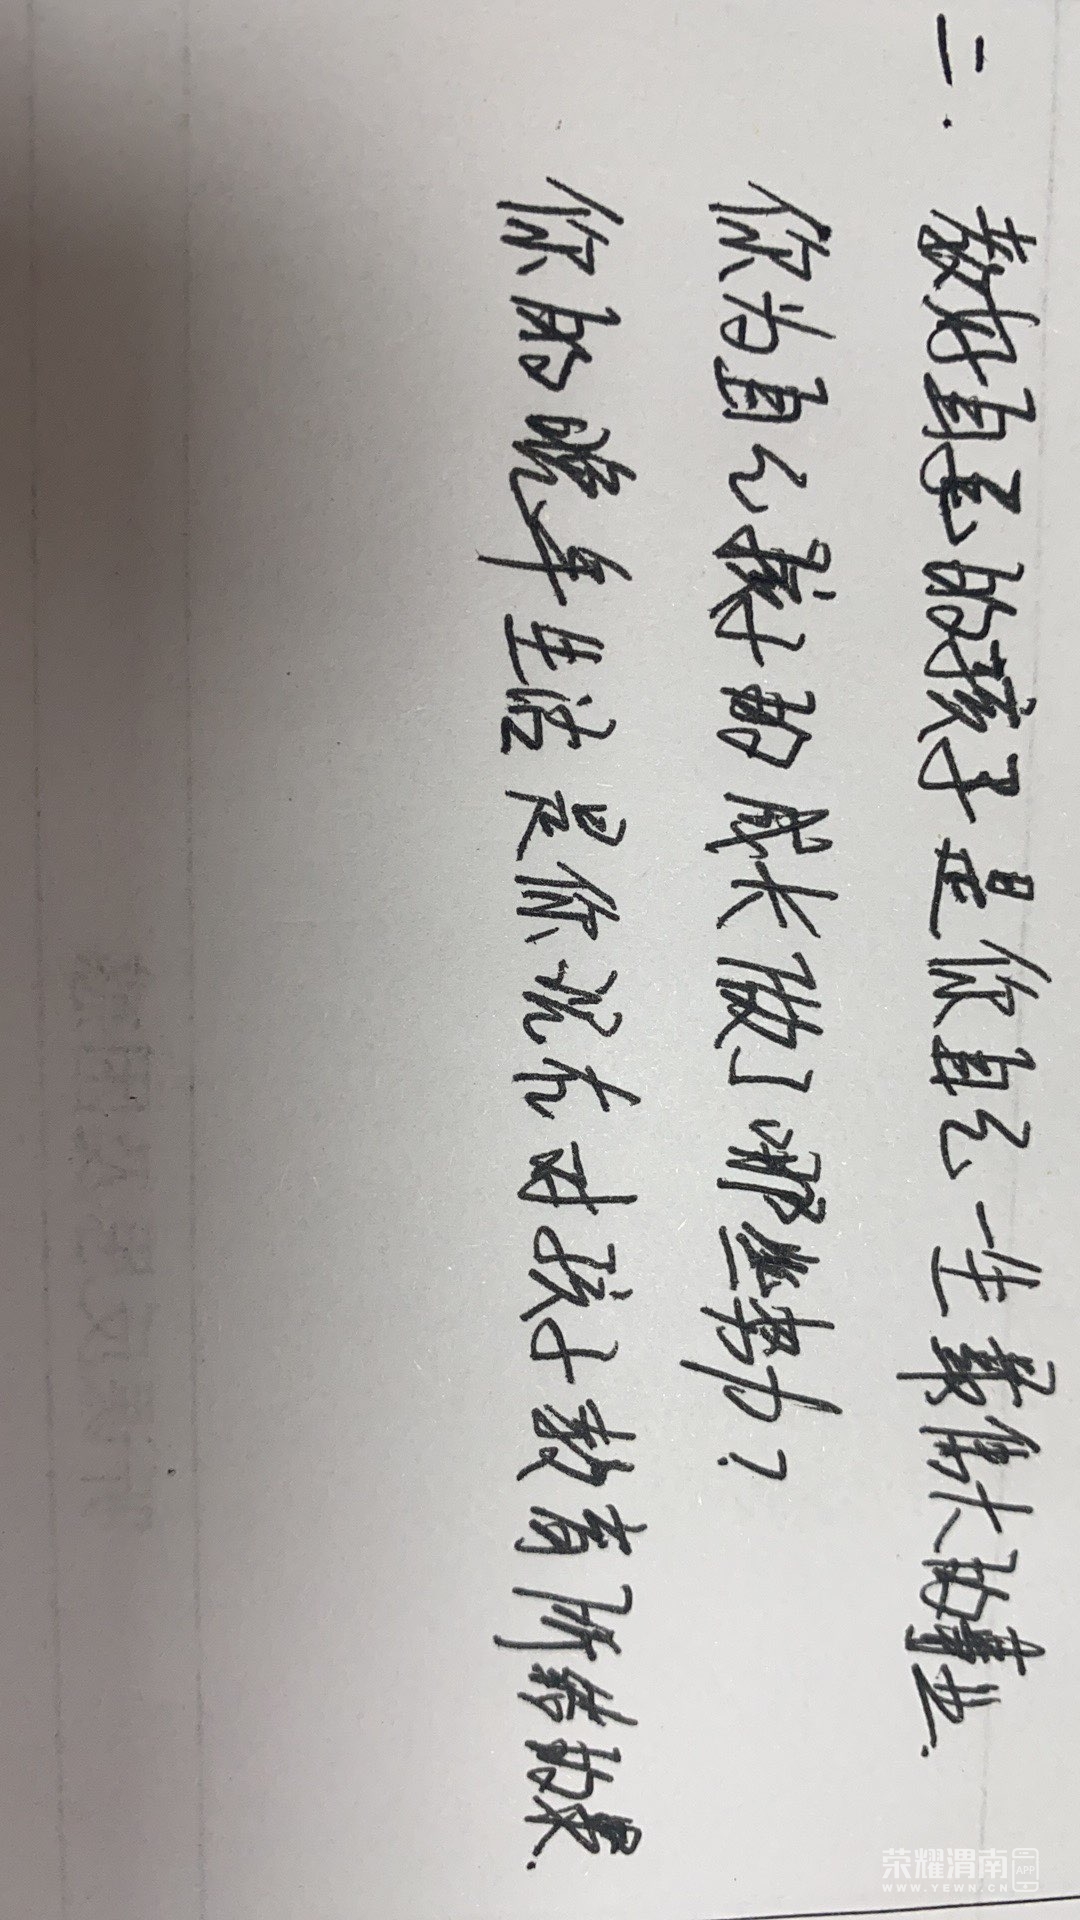 二. 教好自己的孩子是你自己一生最伟大的事业.
你为自己孩子的成长做了哪些努力?
你的晚年生活是你现在对孩子教育所结的果.
荣耀渭南
APP
WWW.YEWN.CN